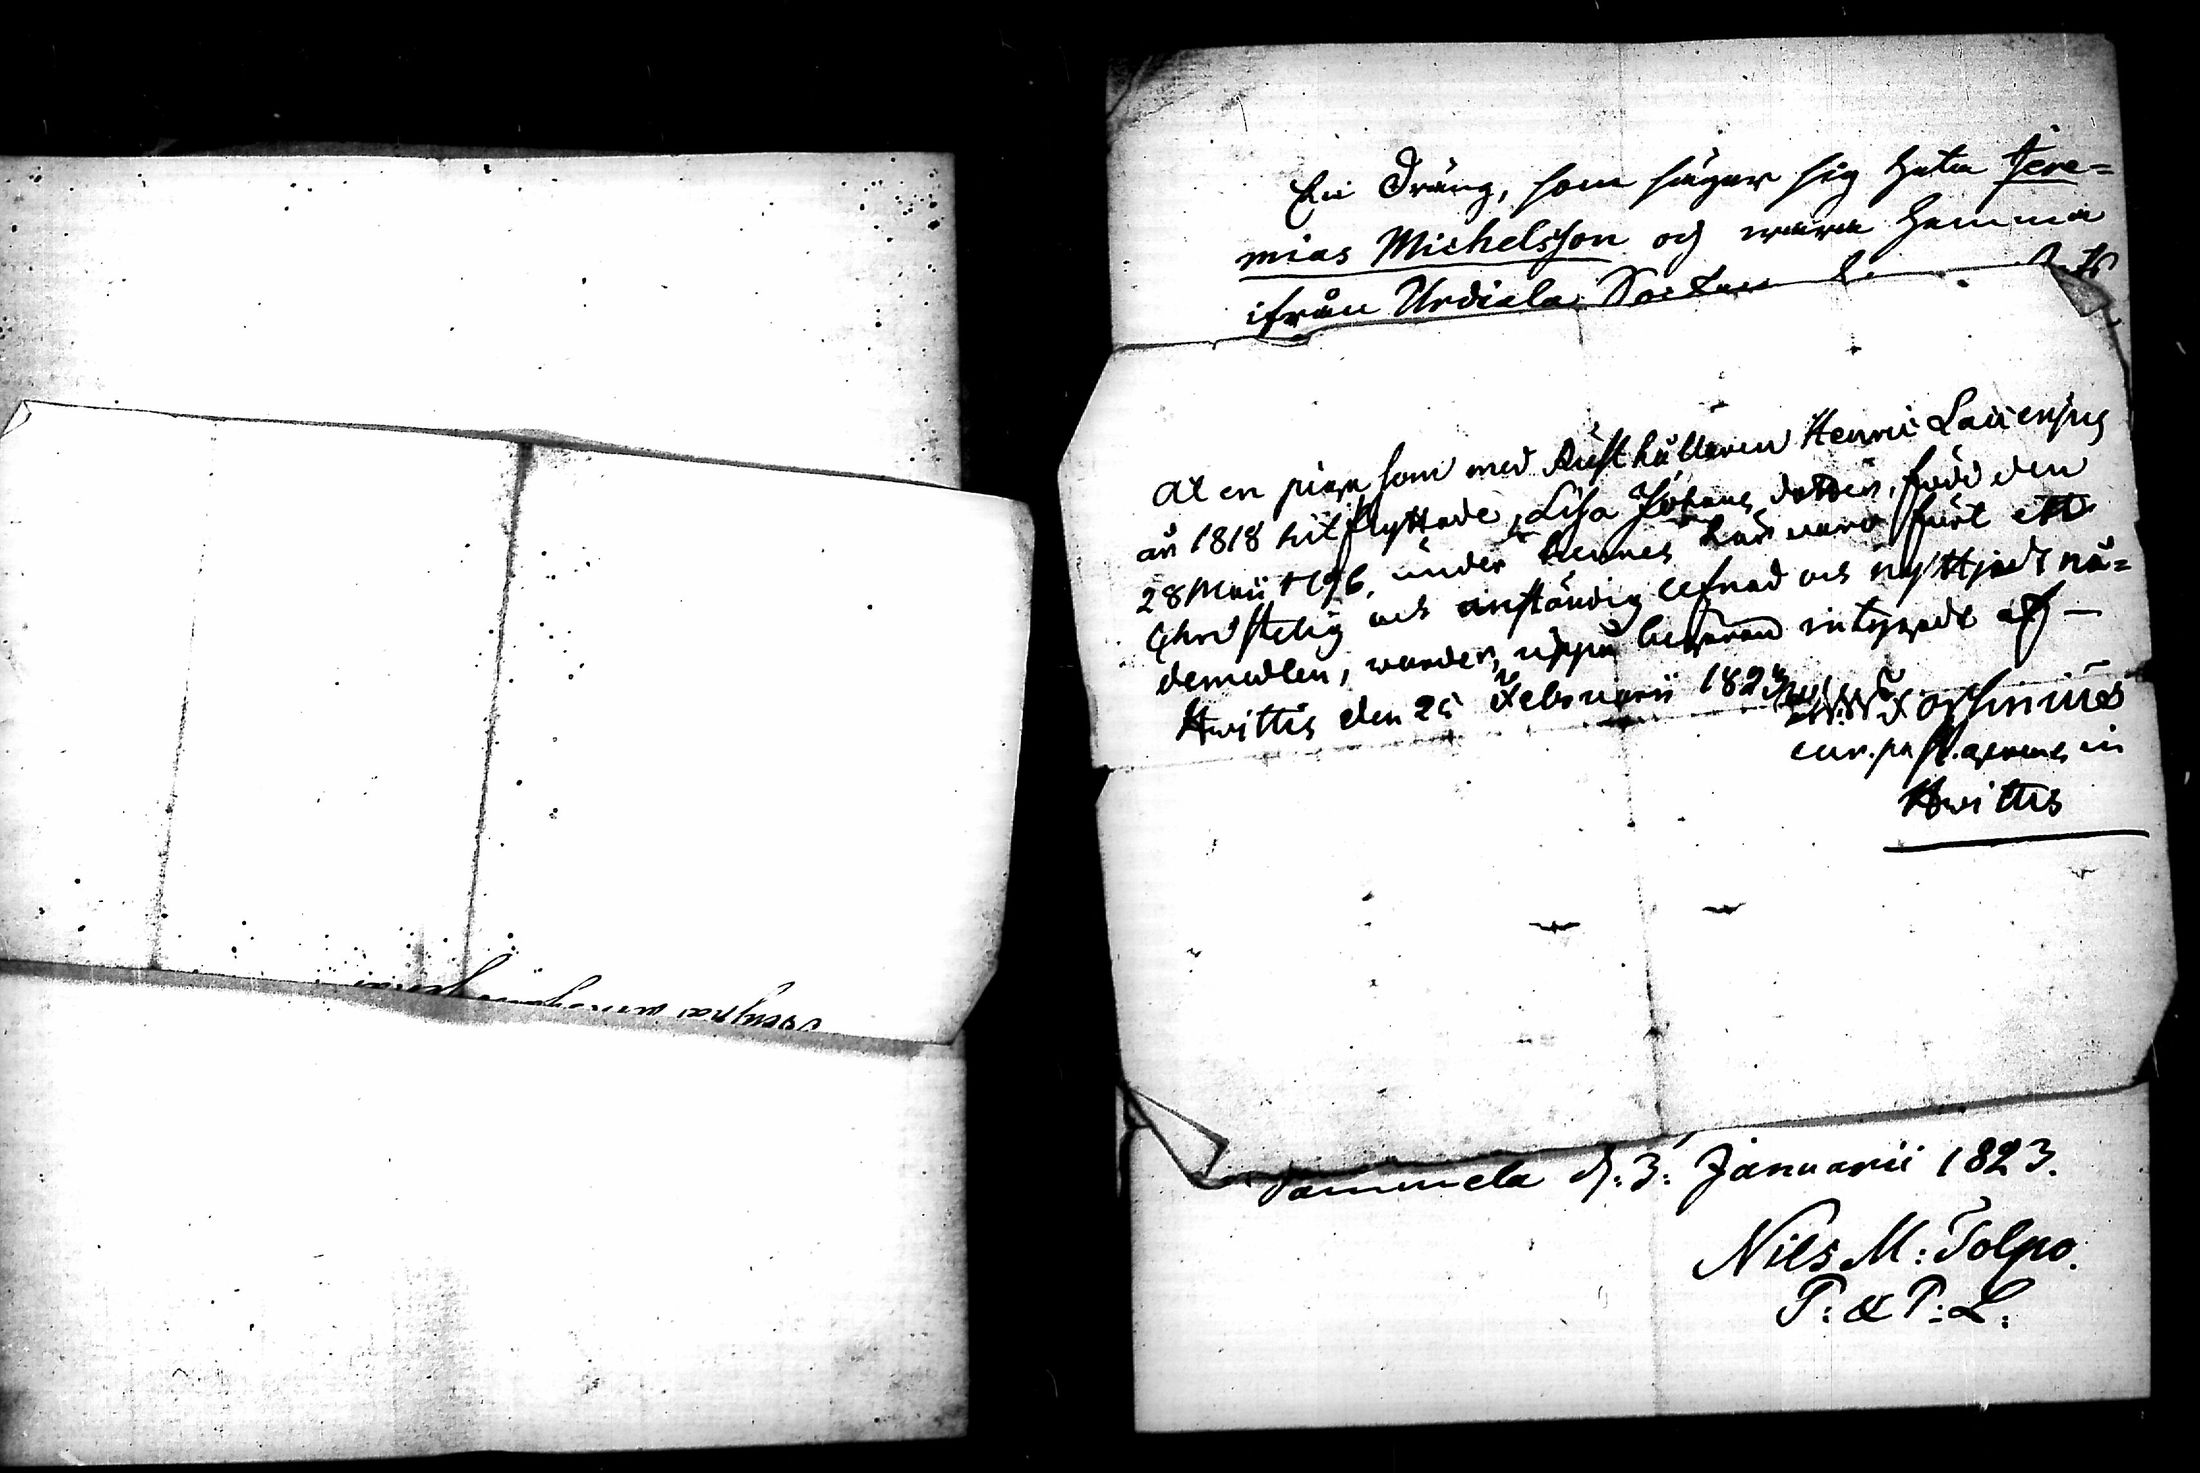 En Dräng, som säger sig heta Jere=
mias Michelsson och wara hemma
ifrån Urdiala Socken
At en piga som med Rusthållaren Henric
år 1818 hit flyttade, Lisa Johans dotter, född den
28 Maii 1796, under hennes härvaro fört ett
Christelig och anständig lefnad och nyttjadt nå=
demedlen, warder, uppå begäran intygadt af —
Hwittis den 25 Februarii 1823
cur. past. in
Hwittis
d. 3: Januarii 1823.
Nils M: Tolpo.
P: & P: L: